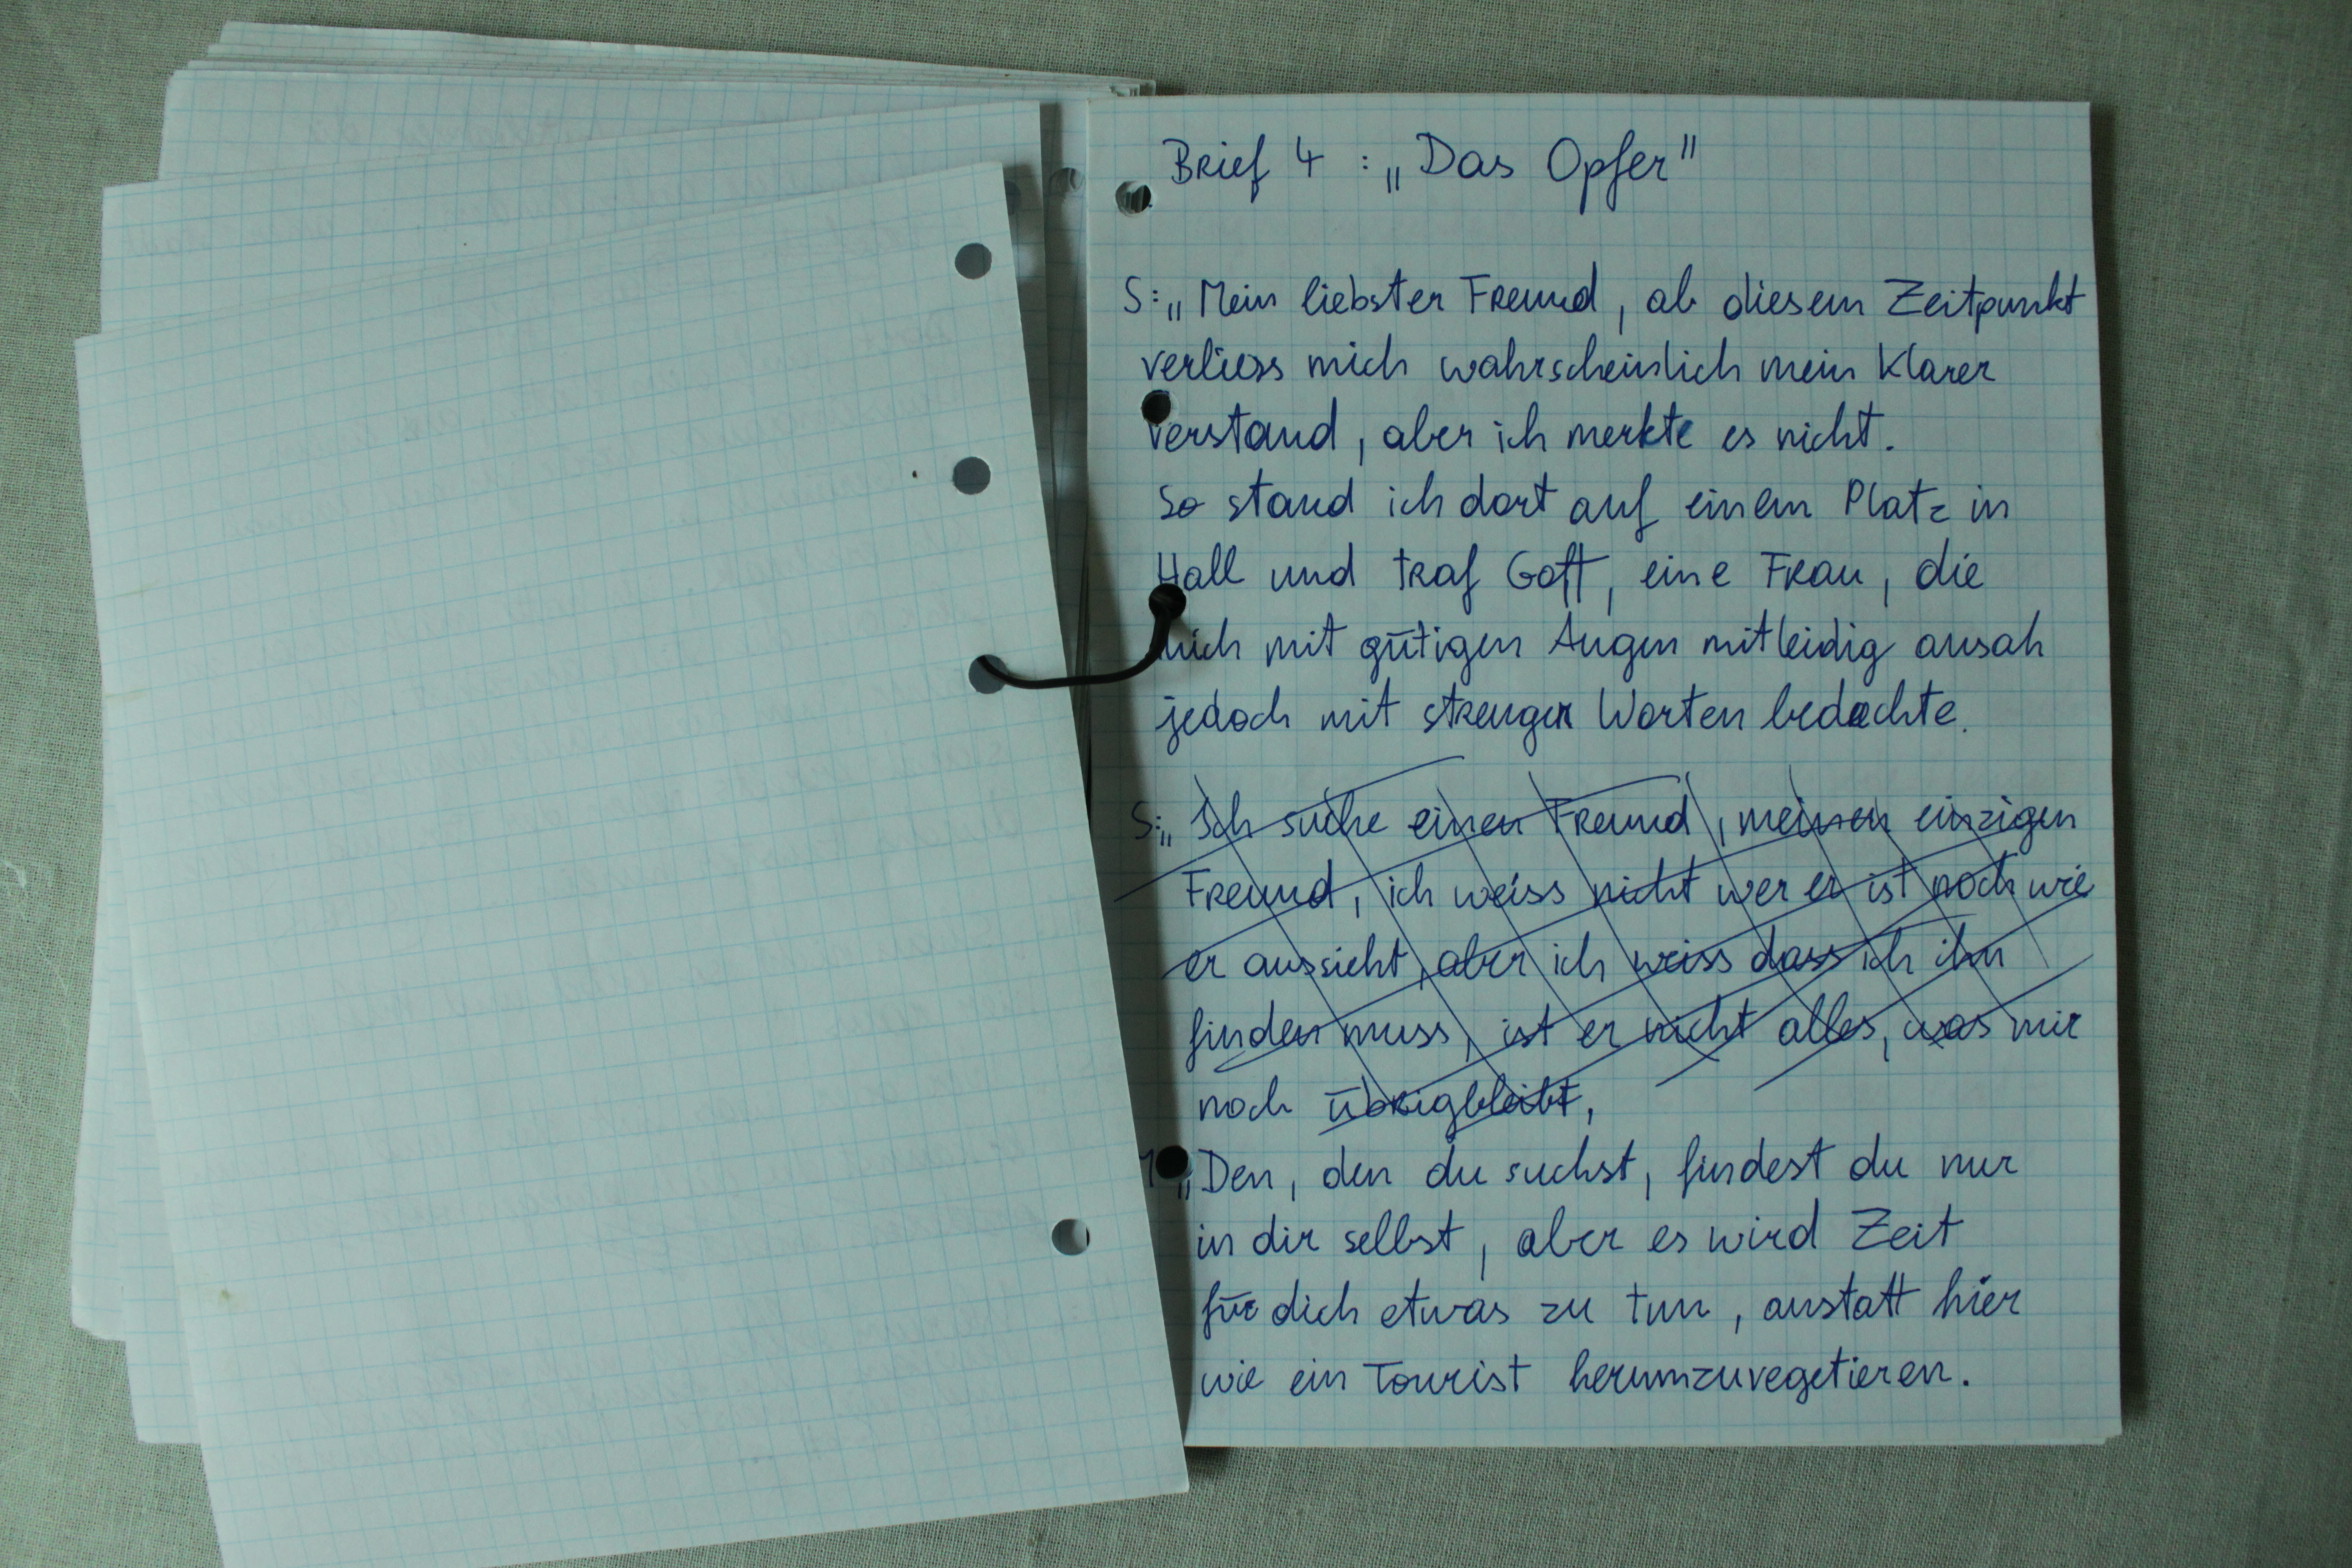 Brief 4 : „Das Opfer"
S: „Mein liebster Freund, ab diesem Zeitpunkt
verliess mich wahrscheinlich mein klarer
Verstand, aber ich merkte es nicht.
So stand ich dort auf einem Platz in
Hall und traf Gott, eine Frau, die
mich mit gütigen Augen mitleidig ansah
jedoch mit strengen Worten bedachte.
S: „Ich suche einen Freund, meinen einzigen
Freund, ich weiss nicht wer er ist noch wie
er aussieht, aber ich weiss dass ich ihn
finden muss, ist er nicht alles, was mir
noch übrigbleibt,
„Den, den du suchst, findest du nur
in dir selbst, aber es wird Zeit
für dich etwas zu tun, anstatt hier
wie ein Tourist herumzuvegetieren.